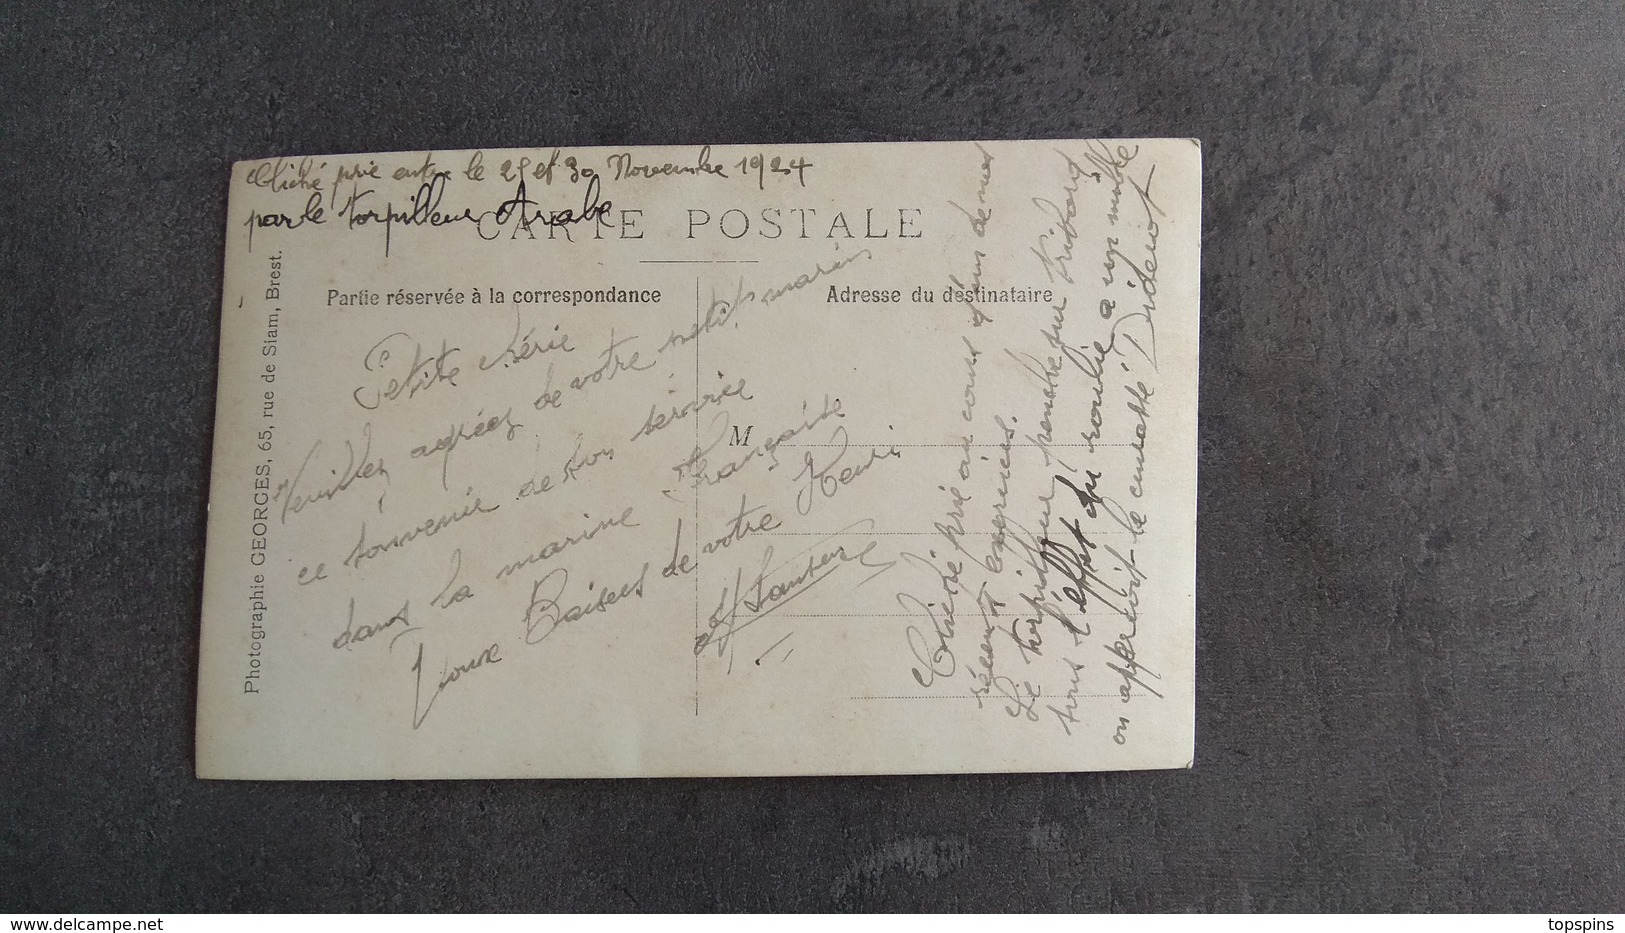 Cliché pris entre le 25 et 30 Novembre 1924
par le torpilleur Arabe
CARTE POSTALE
Partie réservée à la correspondance
Adresse du destinataire
Photographie GEORGES, 65, rue de Siam, Brest.
Petite
Veuillez agréez de votre petit marin
ce souvenir de son service
dans la marine Française
Doux Baisers de votre Henri
M
Cliché pris au cours d'un de nos
récents exercices.
Le torpilleur penche sur tribord
sous l'effet du roulis, a
on apperçoit le cuirassé Diderot
www.delcampe.net
topspins